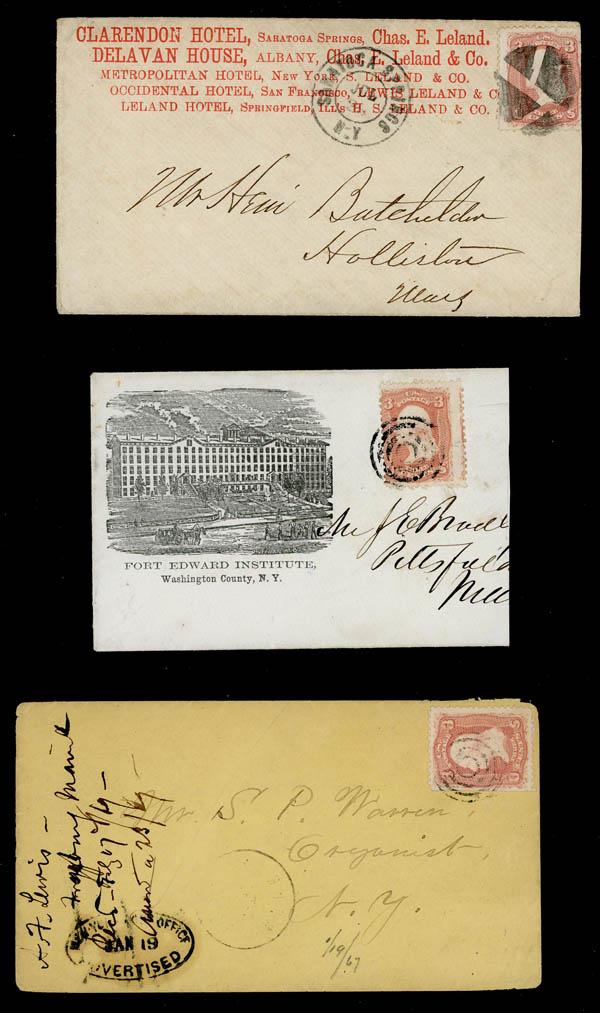 CLARENDON HOTEL, SARATOGA SPRINGS, Chas. E. Leland.
DELAVAN HOUSE, ALBANY, Chas. E. Leland & Co.
METROPOLITAN HOTEL, NEW YORK, S. LELAND & CO.
OCCIDENTAL HOTEL, SAN FRANCISCO, LEWIS LELAND & CO
LELAND HOTEL, SPRINGFIELD, ILLS H. S. LELAND & CO.
SARATOGA SPRINGS
N.Y.
3 3
Batchelder
Holliston
Mass
3 3
U.S. POSTAGE
FORT EDWARD INSTITUTE,
Washington County, N. Y.
Pittsfield
A. F. Lewis -
Fryeburg Maine
3 3
Mr. S. P. Warren,
Organist,
N. Y.
1/19/67
OFFICE
JAN 19
ADVERTISED